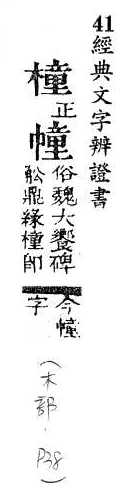 41 經典文字辨證書
橦正幢俗魏大饗碑
舩鼎緣橦即
今幢
字
(木部. P38)